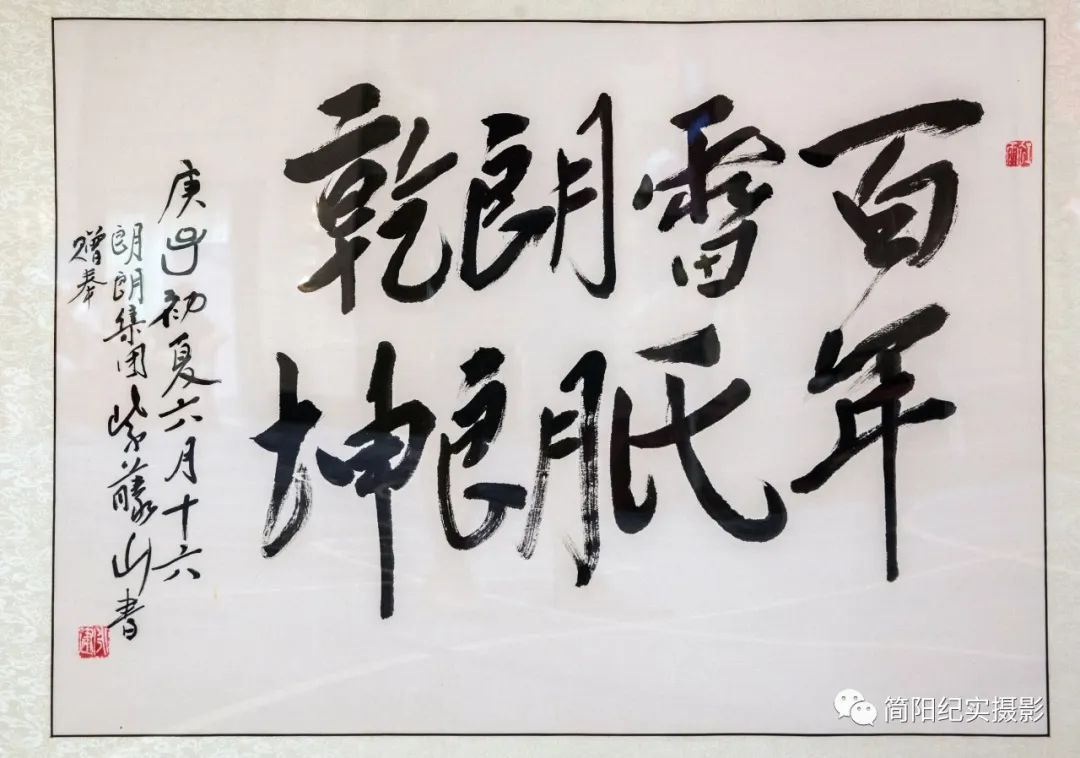 百年
雷氏
朗朗
乾坤
庚子初夏六月十六
朗朗集团紫藤山书
赠奉
简阳纪实摄影